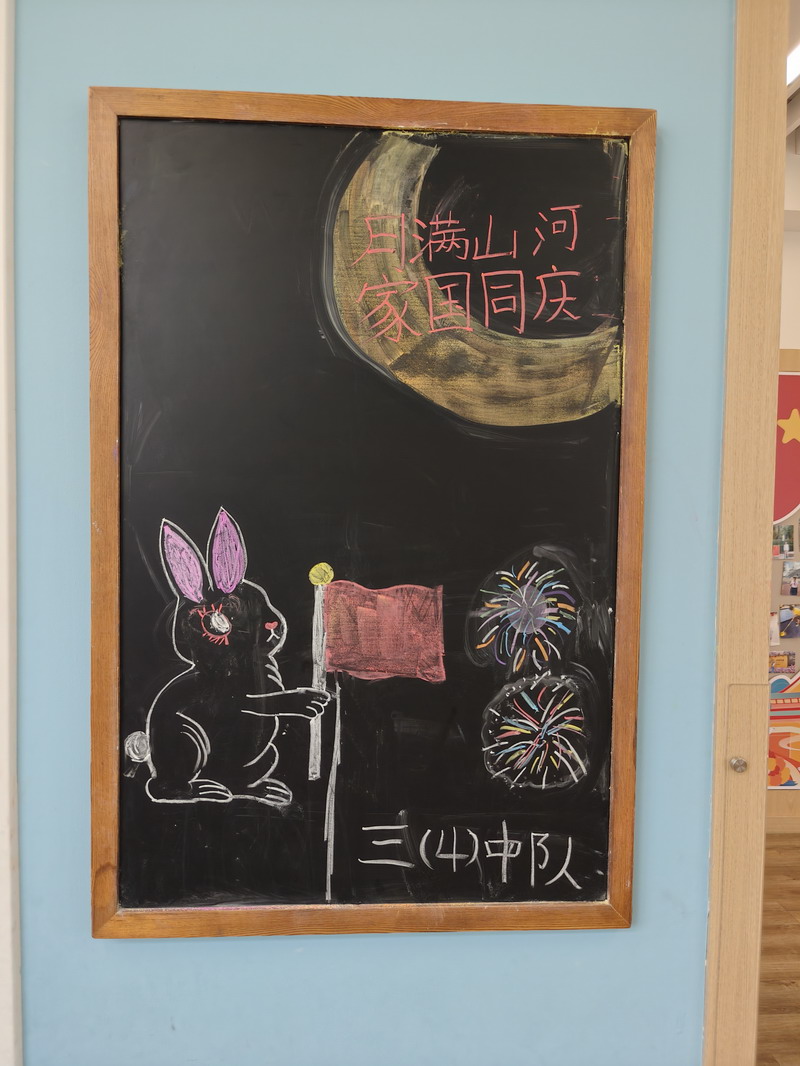 月满山河
家国同庆
三(4)中队